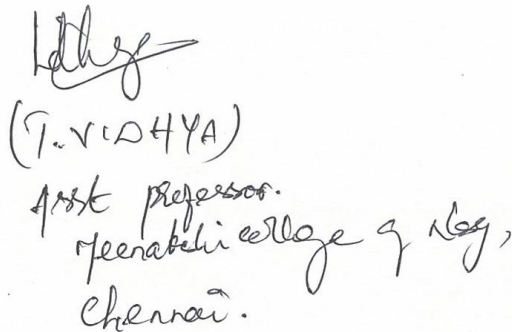 (T. VIDHYA)
Asst professor.
Meenakshi college of Nsg,
Chennai.